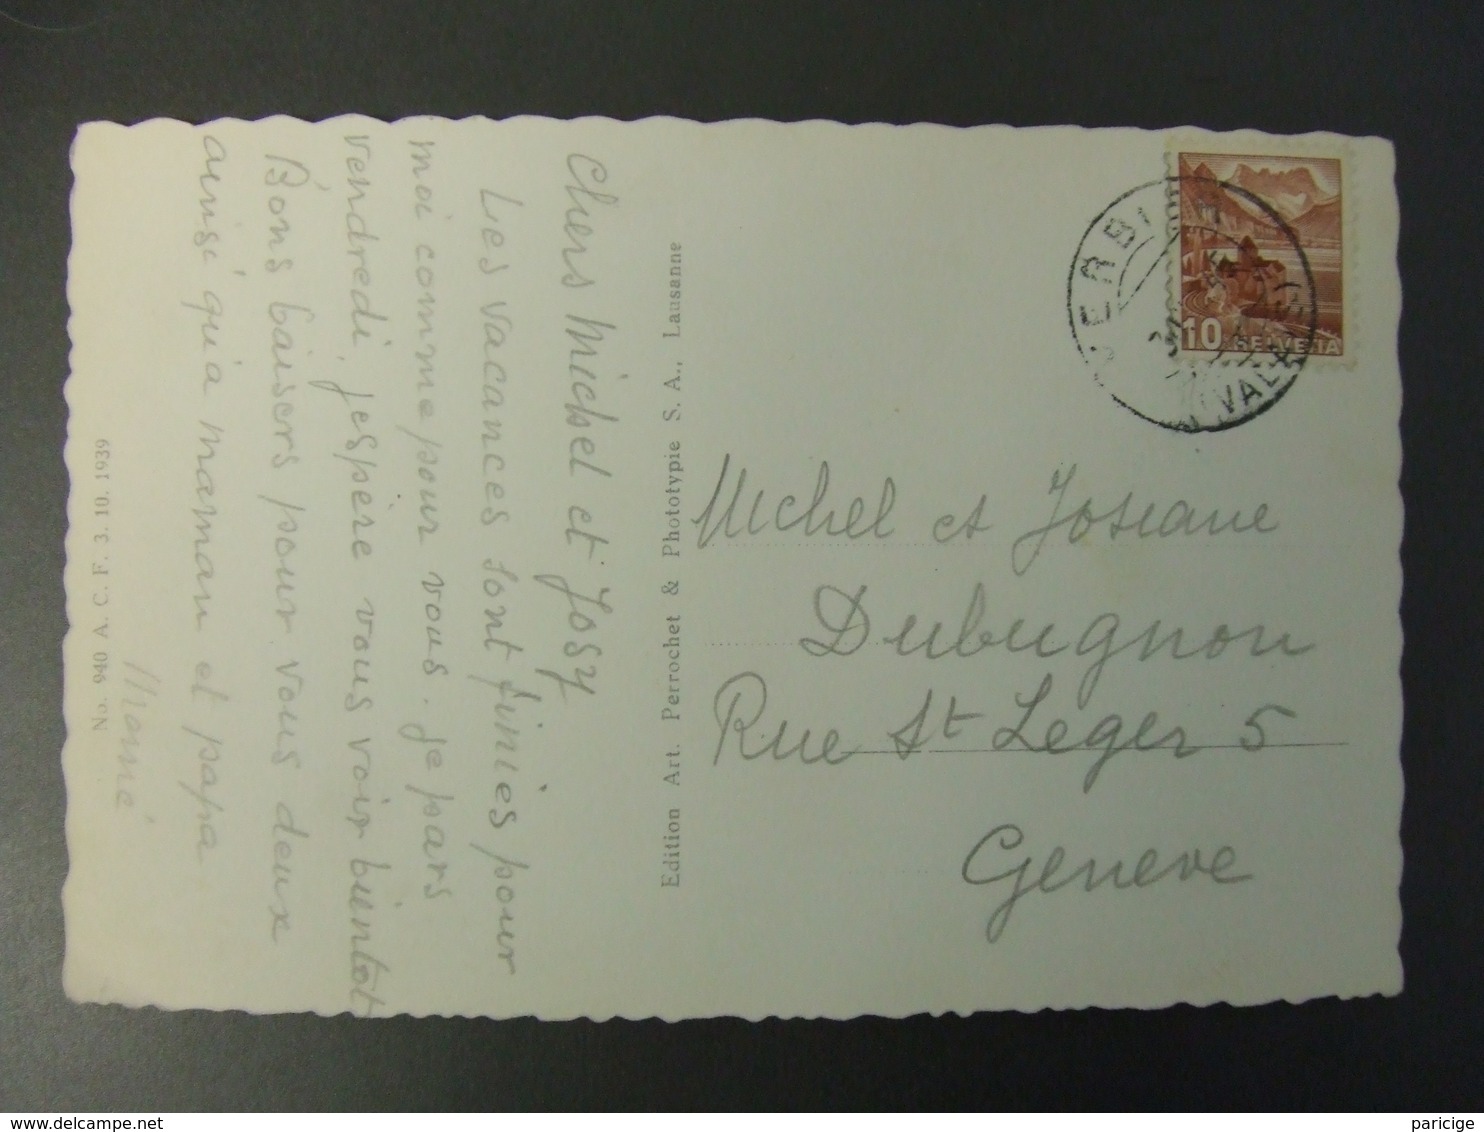 Chers Michel et Josy
Les vacances sont finies pour
moi comme pour vous. je pars
vendredi, jespère vous voir bientôt
Bons baisers pour vous deux
ainsi qu'a maman et papa
No. 940 A. C. F. 3. 10. 1939
Edition Art. Perrochet & Phototypie S. A., Lausanne
VERBIER
(VALAIS)
10 HELVETIA
Michel et Josiane
Dubugnon
Rue St Leger 5
Geneve
www.delcampe.net
paricige